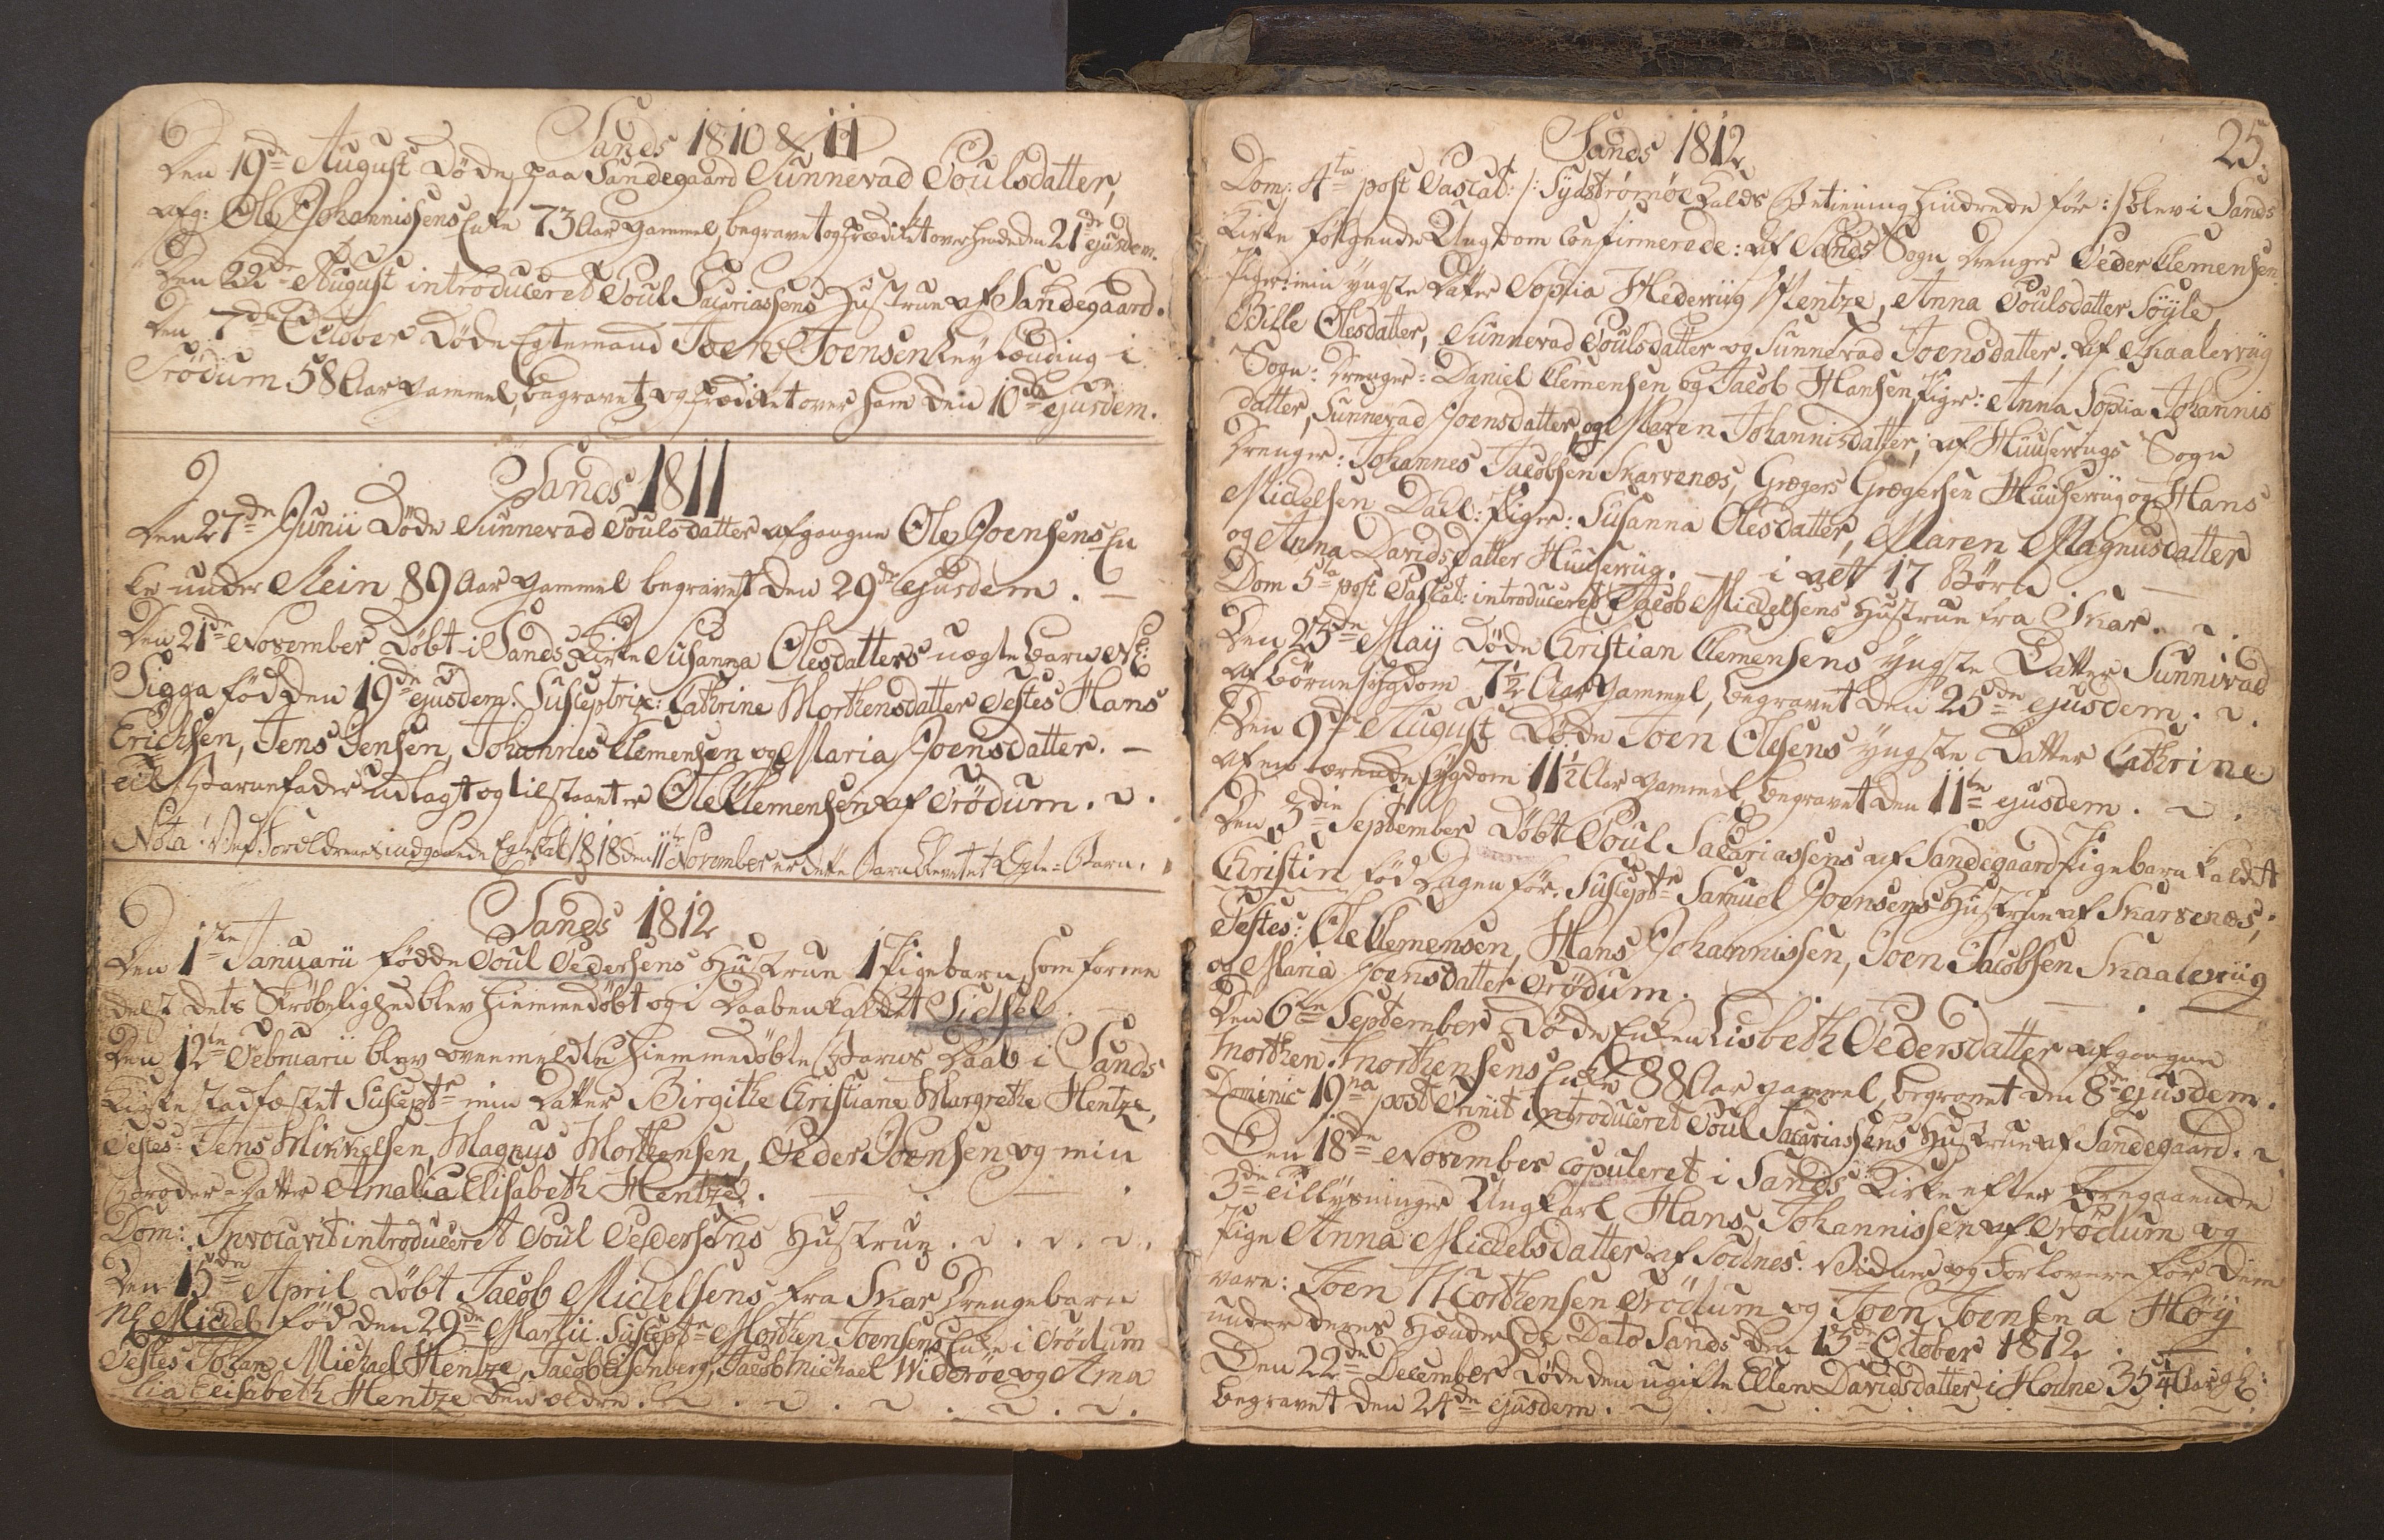 Sands 1810 & 11
Den 19de August Døde paa Sandegaard Sunnevad Poulsdatter,
afg: Ole Johannissens Enke 73 Aar gammel, begravet og prædiket over hende den 21de ejusdem.
Den 22de August introduceret Poul Sacariassens Hustrue af Sandegaard.
Den 7de October Døde Egtemand Joen Joensen Reylænding i
Trödum 58 Aar gammel, begravet og prædiket over ham den 10de ejusdem.
Sands 1811
Den 27de Junii Døde Sunnevad Poulsdatter afgangne Ole Joensens En
ke under Stein 89 Aar gammel begravet den 29de ejusdem. —
Den 21de November Døbt i Sands Kirke Susanna Olesdatters uægte barn Nl:
Sigga fød den 19de ejusdem. Susceptrix: Cathrine Morthensdatter Testes Hans
Erichsen, Jens Jensen, Johannes Clemensen og Maria Joensdatter. —
til Barnefader udlagt og tilstaaet er Ole Clemensen af Trödum.
Nota: Ved Forældrenes indgaaede Egteskab 1818 den 11te November er dette Barn blevet et Egte-Barn.
Sands 1812
Den 1ste Januarii fødde Poul Pedersens Hustrue 1 Pigebarn, som forme
delst dets Skrøbelighed blev hiemmedøbt og i Daaben kaldet Sidsel.
Den 12te Februarii blev ovenmeldte hiemmedøbte Barns Daab i Sands
Kirke stadfæstet Suscept: min Datter Birgithe Christiane Margrethe Hentze,
Testes: Jens Mikkelsen, Magnus Morthensen, Peder Joensen og min
Broder-Datter Amalia Elisabeth Hentze.
Dom: Invocavit introduceret Poul Pedersens Hustrue.
Den 15de April Døbt Jacob Mickelsens fra Skar Drengebarn
Nl. Mickel fød den 29de Martii. Suscept: Morthen Joensens Enke i Trödum
Testes Johan Michael Hentze, Jacob Eisenberg, Jacob Michael Widerøe og Ama
lia Elisabeth Hentze den ældre.
Sands 1812
25.
Dom: 4ta post Pascat: /: Sydstrømøe Halds Betiening hindrede før :/ blev i Sands
Kirke følgende Ungdom Confirmerede: af Sands Sogn Drenge Peder Clemensen
Piger: min yngste Datter Sophia Hedewig Hentze, Anna Poulsdatter Söyle
Bille Olesdatter, Sunnevad Poulsdatter og Sunnevad Joensdatter. Af Skaalewiig
Sogn: Drenge: Daniel Clemensen og Jacob Hansen, Piger: Anna Sophia Johannis
datter, Sunnevad Joensdatter og Maren Johannisdatter; af Huusewiigs Sogn
Drenge: Johannes Jacobsen Skarvenæs, Grægers Grægersen Huusewiig og Hans
Mickelsen Dahl: Piger: Susanna Olesdatter, Maren Magnusdatter
og Anna Davidsdatter Huusewiig. — i alt 17 Børn
Dom 5ta post Pascat: introduceret Jacob Mickelsens Hustrue fra Skar.
Den 23de Maÿ Døde Christian Clemensens yngste Datter Sunnivad
af Børnesygdom 7½ Aar gammel, begravet den 25de ejusdem.
Den 9de August Døde Joen Olesens yngste Datter Cathrine
af en tærende sygdom 11½ Aar gammel, begravet den 11te ejusdem.
Den 3die September Døbt Poul Sacariassens af Sandegaard Pigebarn kaldet
Christin fød Dagen før. Suscept: Samuel Joensens Hustrue af Skarvenæs;
Testes: Ole Clemensen, Hans Johannissen, Joen Jacobsen Skaalewiig
og Maria Joensdatter Trödum.
Den 6te September Døde Enken Lisbeth Pedersdatter afgangne
Morthen Morthensens Enke 88 Aar gammel, begravet den 8de ejusdem.
Dominic 19na post Trinit introduceret Poul Sacariassens Hustrue af Sandegaard.
Den 18de November copuleret i Sands Kirke efter foregaaende
3de Tillysninger Ungkarl Hans Johannissen af Trödum og
Pige Anna Mickelsdatter af Todnes. Vidner og Forlovere for dem
vare: Joen Morthensen Trödum og Joen Joensen a Höÿ
under deres Hænder de Dato Sands den 13de October 1812.
Den 22de December Døde den ugifte Ellen Davidsdatter i Hodne 35¼ Aar gl:
begravet den 24de ejusdem.